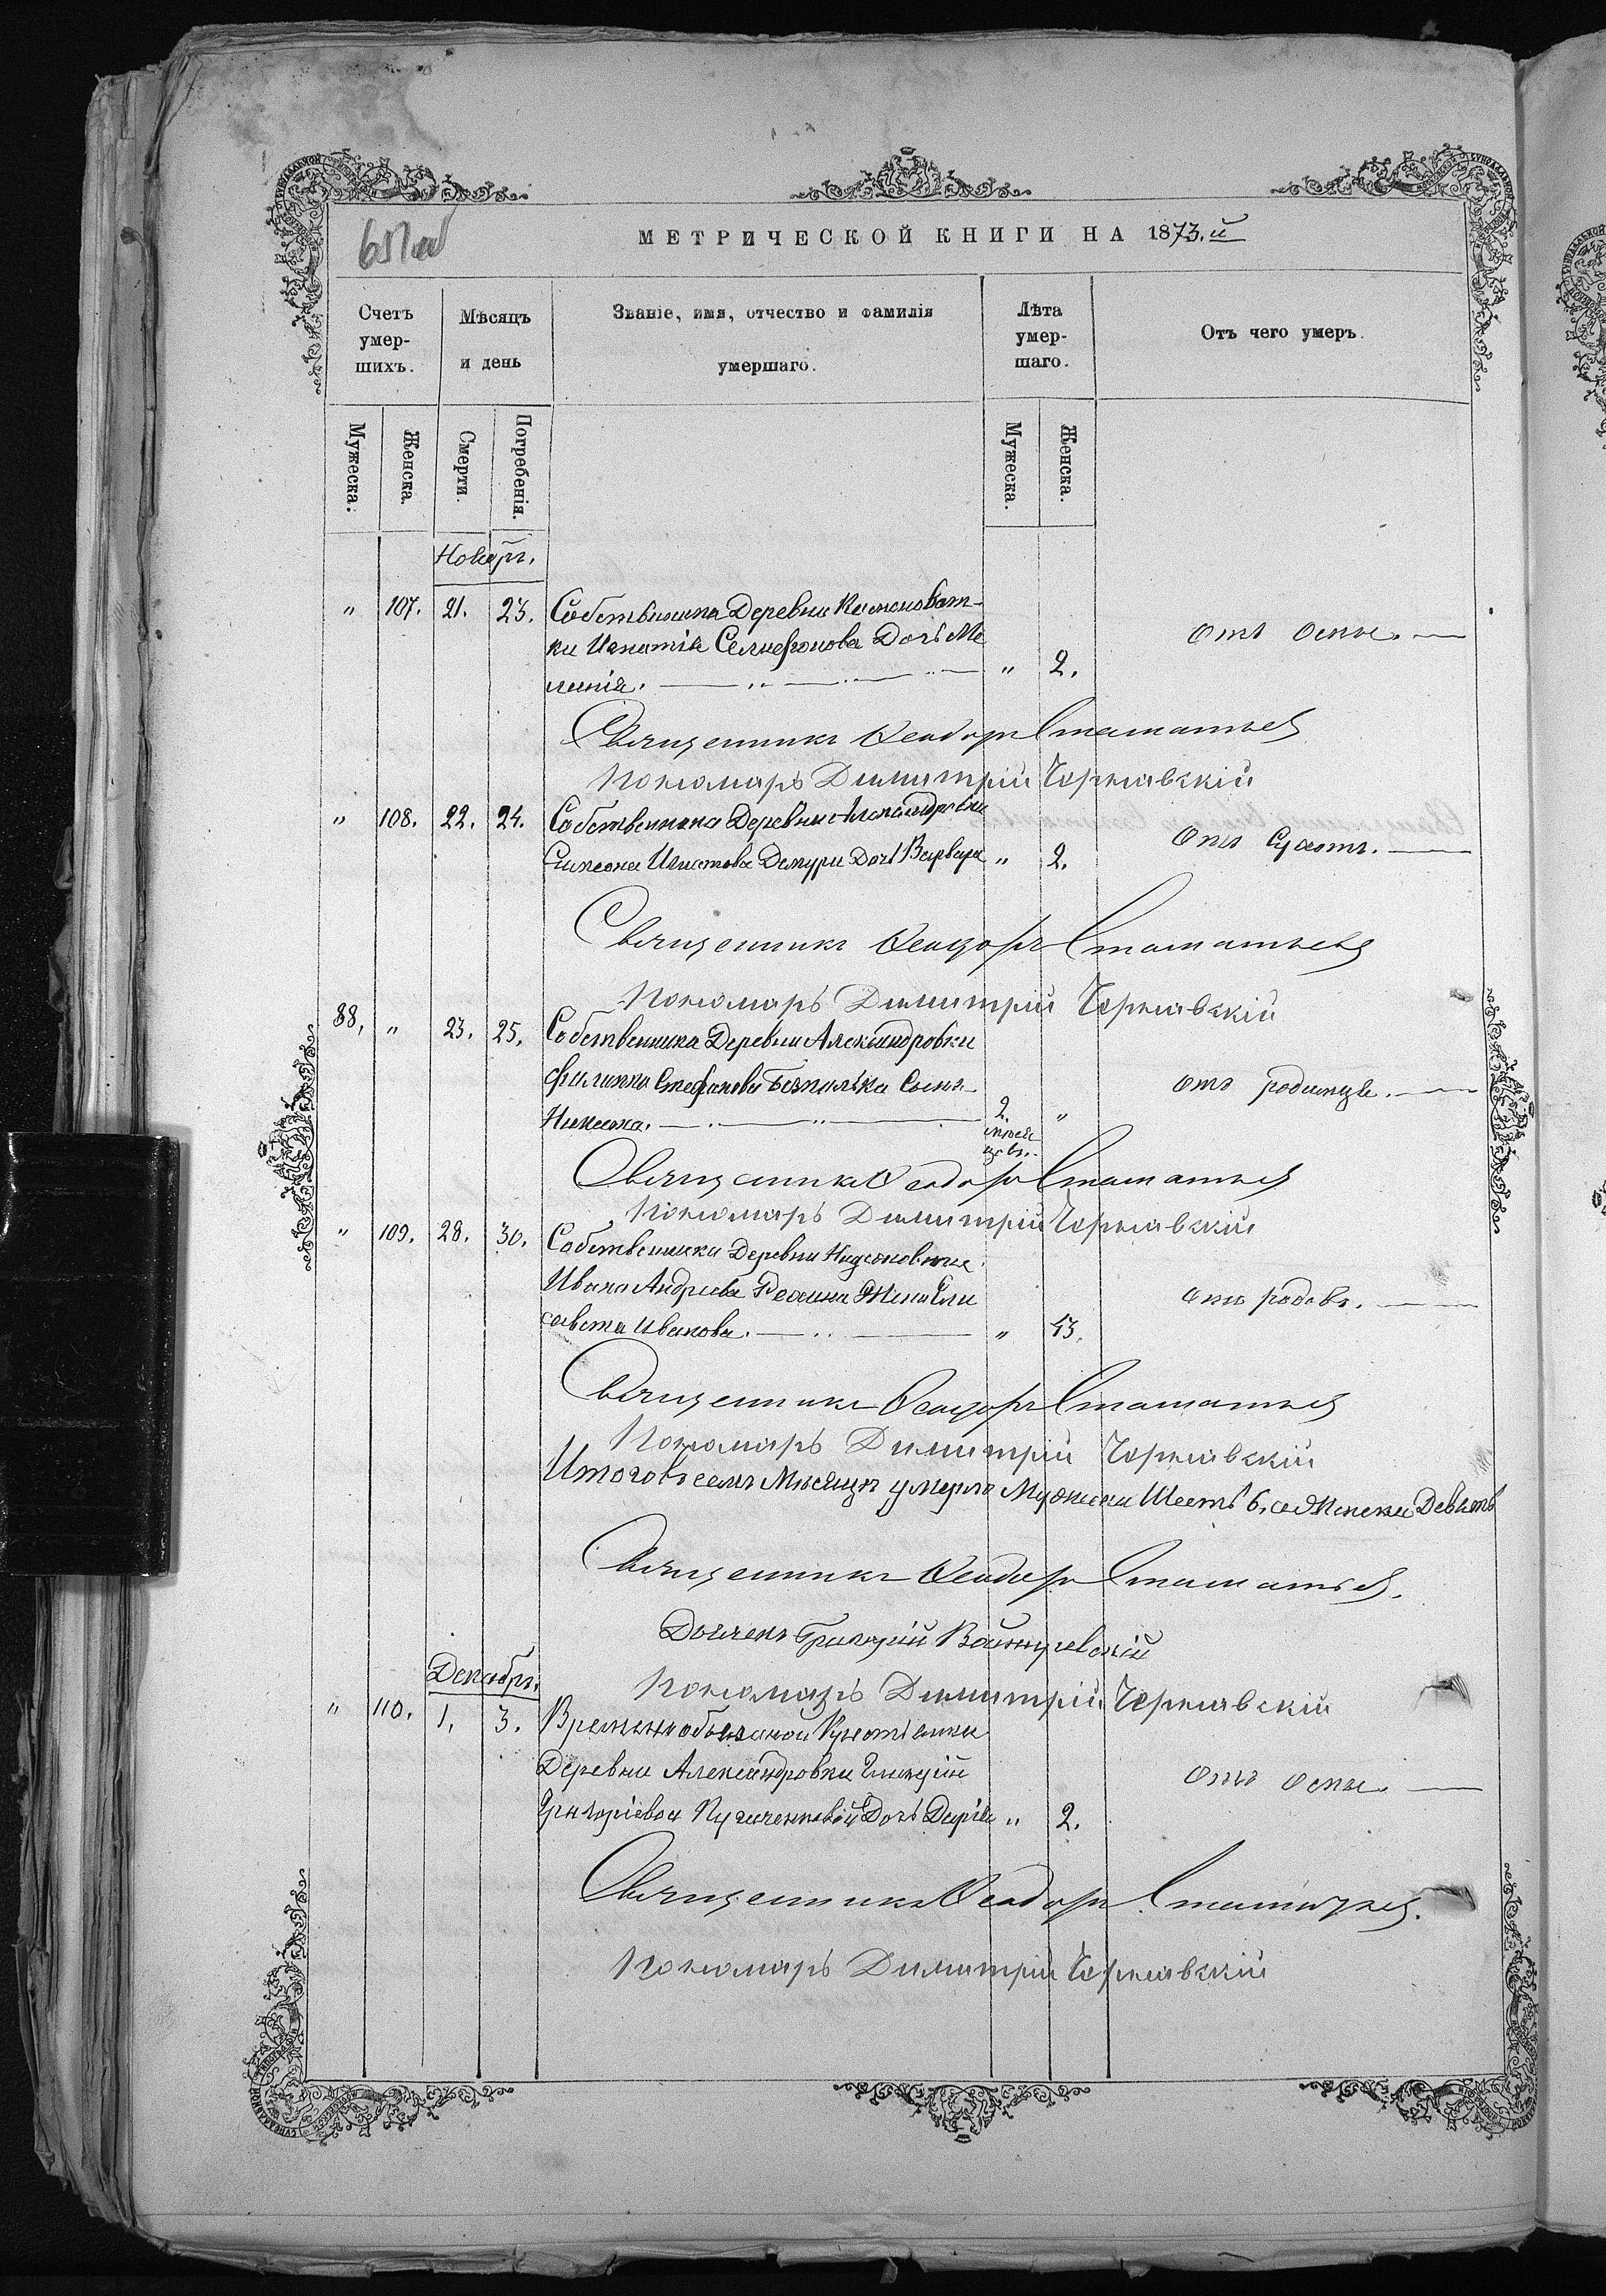 МЕТРИЧЕСКОЙ КНИГИ НА 1873.й
Счетъ умер-
шихъ.
Мѣсяцъ
и день
Званіе, имя, отчество и фамилія
умершаго.
Лѣта
умер-
шаго.
Отъ чего умеръ.
Мужеска.
Женска.
Смерти.
Погребенія.
Мужеска.
Женска.
Ноябрь.
" 107. 21. 23. Собственника Деревни Каменоват-
ки Игнатія Дочь Ме
ланія. " 2. отъ оспы.
Священникъ Ѳеодоръ Стаматьев
Пономарь Димитрій Чернявскій
" 108. 22. 24. Собственника Деревни Александровки
Симеона Дочь Варвара " 2. Отъ сухот.
Священникъ Ѳеодоръ Стаматьев
Пономарь Димитрій Чернявскій
88. " 23. 25. Собственника Деревни Александровки
Филиппа Стефанова Сынъ
2. мѣся
цовъ. " отъ родимца.
Священникъ Ѳеодоръ Стаматьев
Пономарь Димитрій Чернявскій
" 109. 28. 30. Собственника Деревни
Ивана Андреева Жена Ели
савета Иванова. " 43. отъ родовъ.
Священникъ Ѳеодоръ Стаматьев
Пономарь Димитрій Чернявскій
Итого въ семъ Мѣсяцѣ умерло Мужеска Шесть 6, а Женска Девять
Священникъ Ѳеодоръ Стаматьев.
Григорій
Пономарь Димитрій Чернявскій
Декабрь.
" 110. 1. 3. Временнообязаной Крестьянки
Деревни Александровки Гликеріи
Григоріевой Дочь Дарія " 2. отъ оспы.
Священникъ Ѳеодоръ Стаматьев.
Пономарь Димитрій Чернявскій